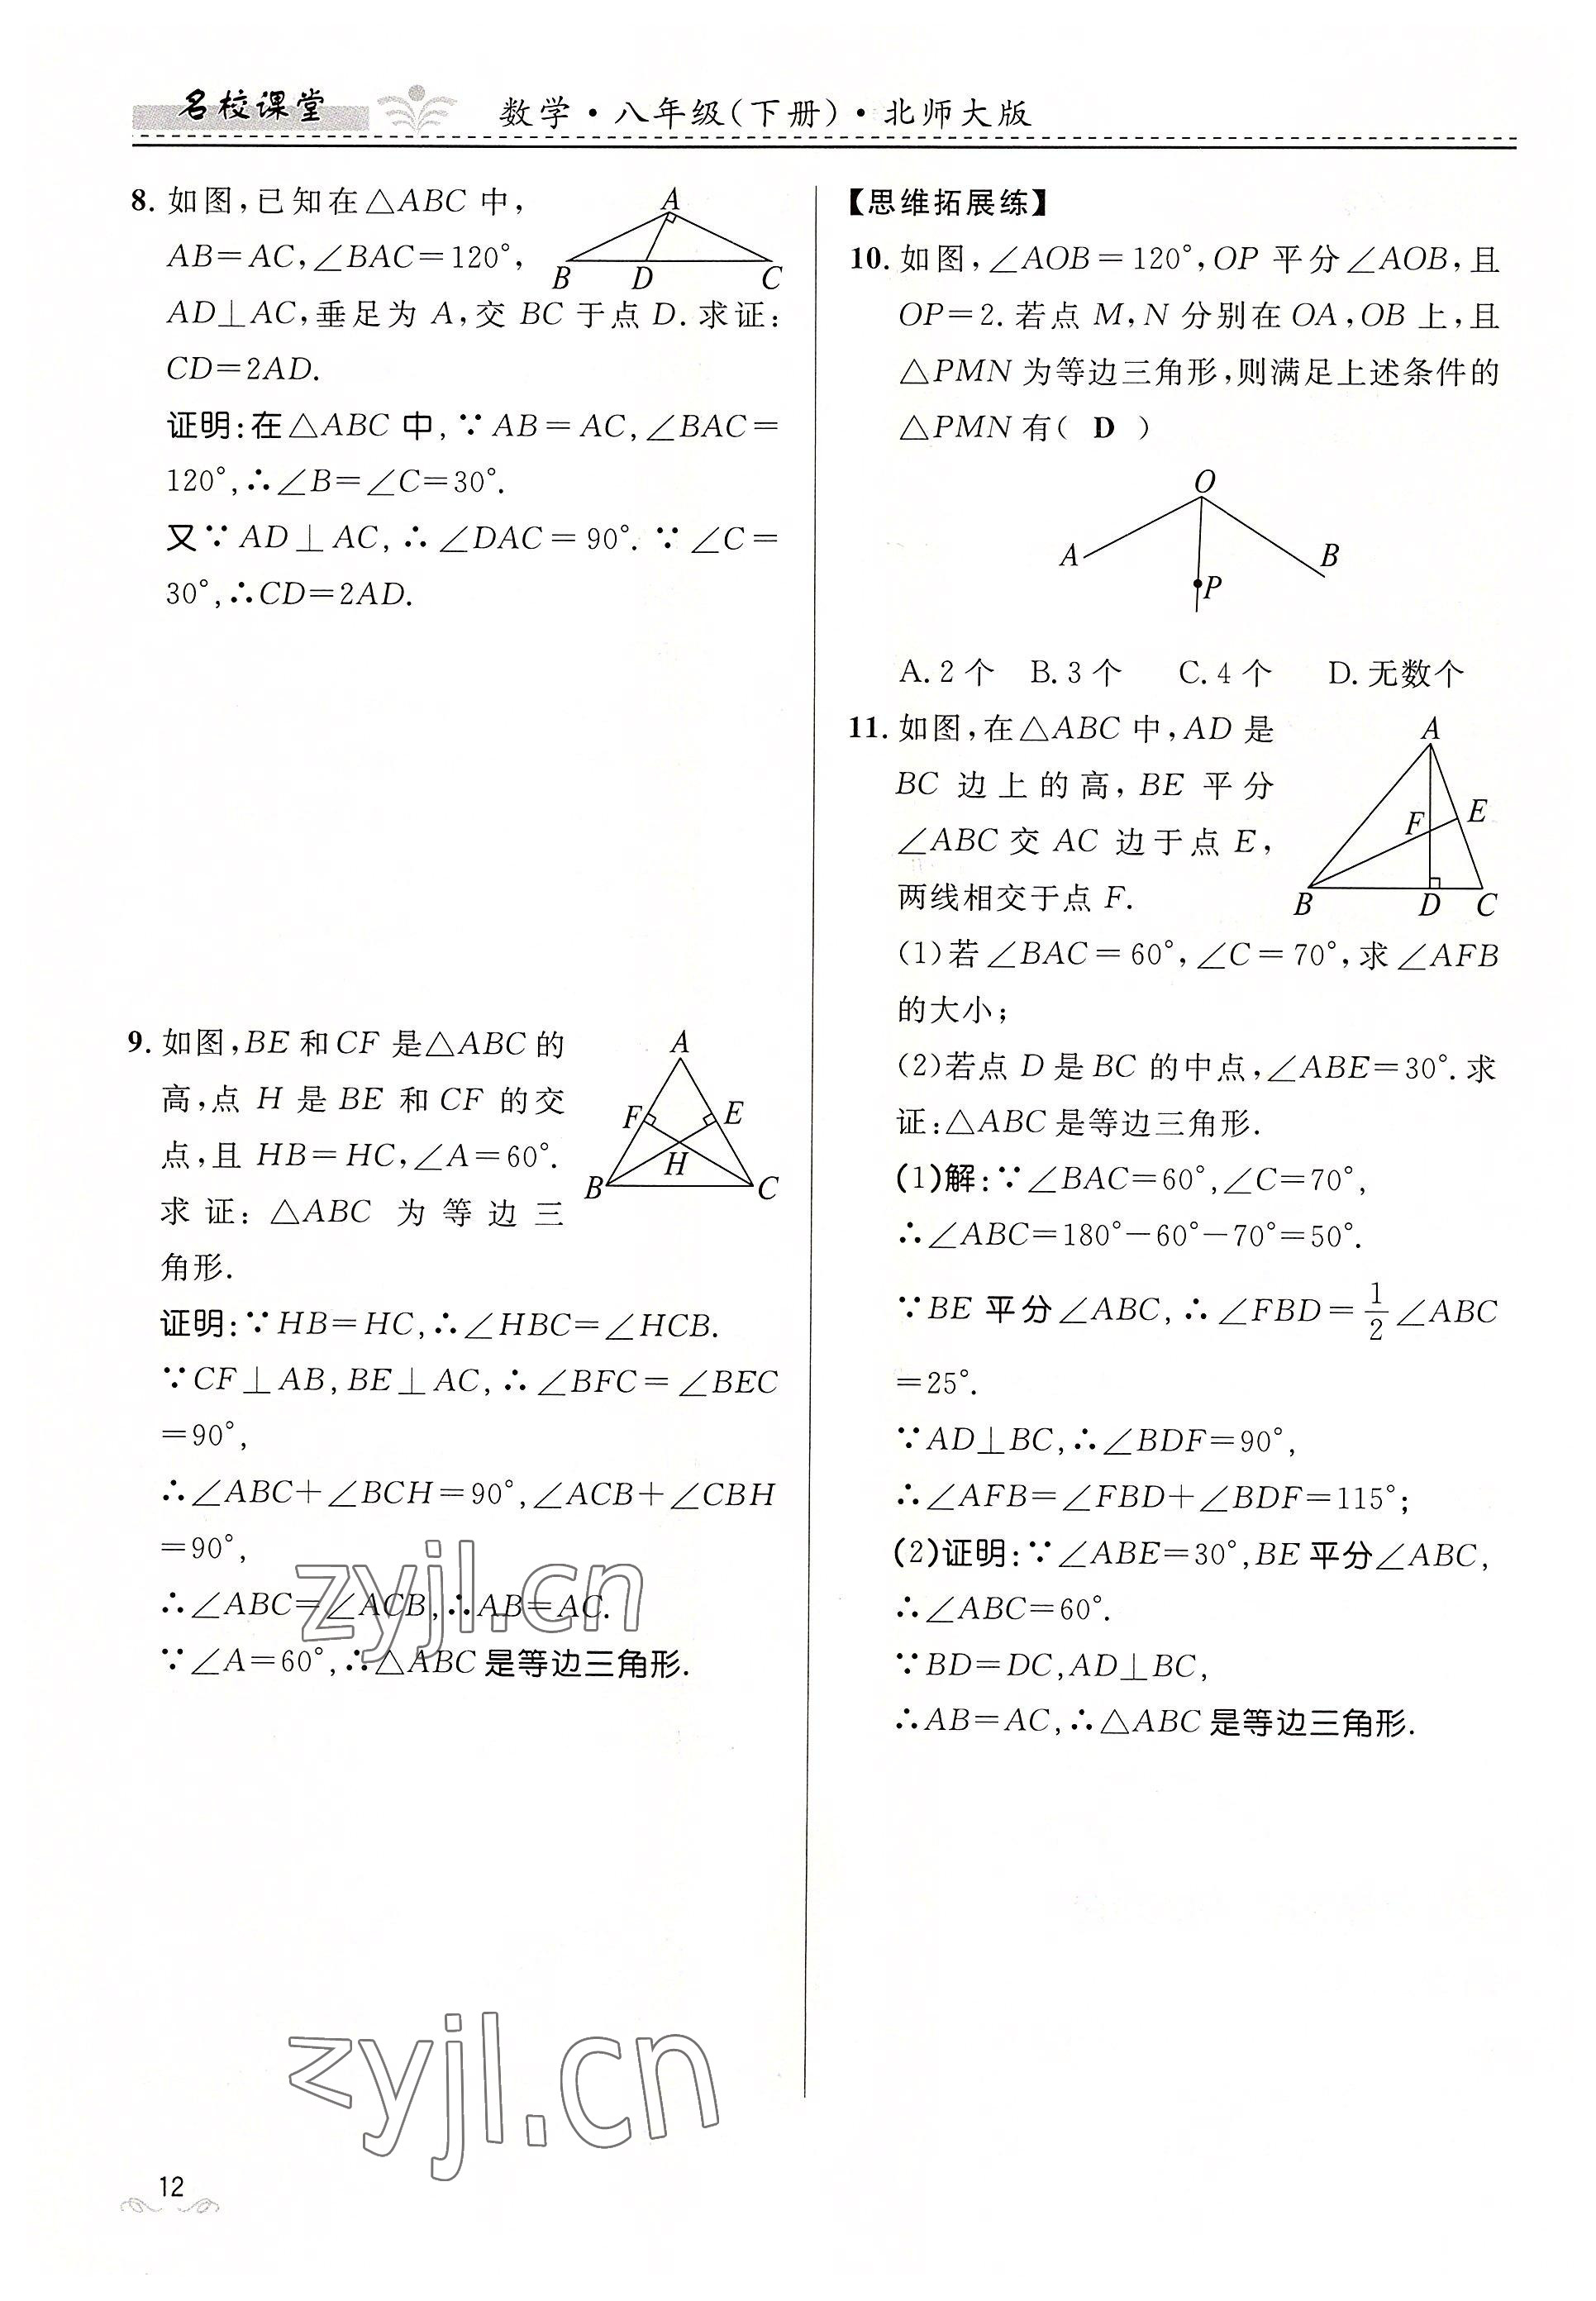 名校课堂 数学·八年级(下册)·北师大版
8. 如图,已知在△ABC 中,
AB=AC,∠BAC=120°,
AD⊥AC,垂足为 A,交 BC 于点 D. 求证:
CD=2AD.
证明:在△ABC 中,∵AB=AC,∠BAC=
120°,∴∠B=∠C=30°.
又∵AD⊥AC,∴∠DAC=90°. ∵∠C=
30°,∴CD=2AD.
A
B D C
9. 如图,BE 和 CF 是△ABC 的
高,点 H 是 BE 和 CF 的交
点,且 HB=HC,∠A=60°.
求证:△ABC 为等边三
角形.
A
F E
H
B C
证明:∵HB=HC,∴∠HBC=∠HCB.
∵CF⊥AB,BE⊥AC,∴∠BFC=∠BEC
=90°,
∴∠ABC+∠BCH=90°,∠ACB+∠CBH
=90°,
∴∠ABC=∠ACB,∴AB=AC.
∵∠A=60°,∴△ABC 是等边三角形.
zyjl.cn
zyjl.cn
12
【思维拓展练】
10. 如图,∠AOB=120°,OP 平分∠AOB,且
OP=2. 若点 M,N 分别在 OA,OB 上,且
△PMN 为等边三角形,则满足上述条件的
△PMN 有( D )
O
A B
P
A. 2 个 B. 3 个 C. 4 个 D. 无数个
11. 如图,在△ABC 中,AD 是
BC 边上的高,BE 平分
∠ABC 交 AC 边于点 E,
两线相交于点 F.
A
F E
B D C
(1)若∠BAC=60°,∠C=70°,求∠AFB
的大小;
(2)若点 D 是 BC 的中点,∠ABE=30°. 求
证:△ABC 是等边三角形.
(1)解:∵∠BAC=60°,∠C=70°,
∴∠ABC=180°-60°-70°=50°.
∵BE 平分∠ABC,∴∠FBD=1/2∠ABC
=25°.
∵AD⊥BC,∴∠BDF=90°,
∴∠AFB=∠FBD+∠BDF=115°;
(2)证明:∵∠ABE=30°,BE 平分∠ABC,
∴∠ABC=60°.
∵BD=DC,AD⊥BC,
∴AB=AC,∴△ABC 是等边三角形.